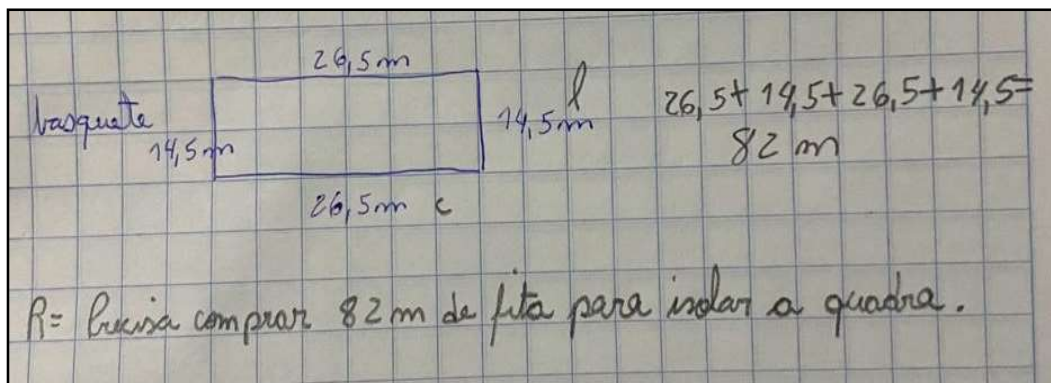 26,5m
basquete
14,5m
14,5m l
26,5m c
26,5+ 14,5+ 26,5+ 14,5=
82 m
R= Precisa comprar 82 m de fita para isolar a quadra.